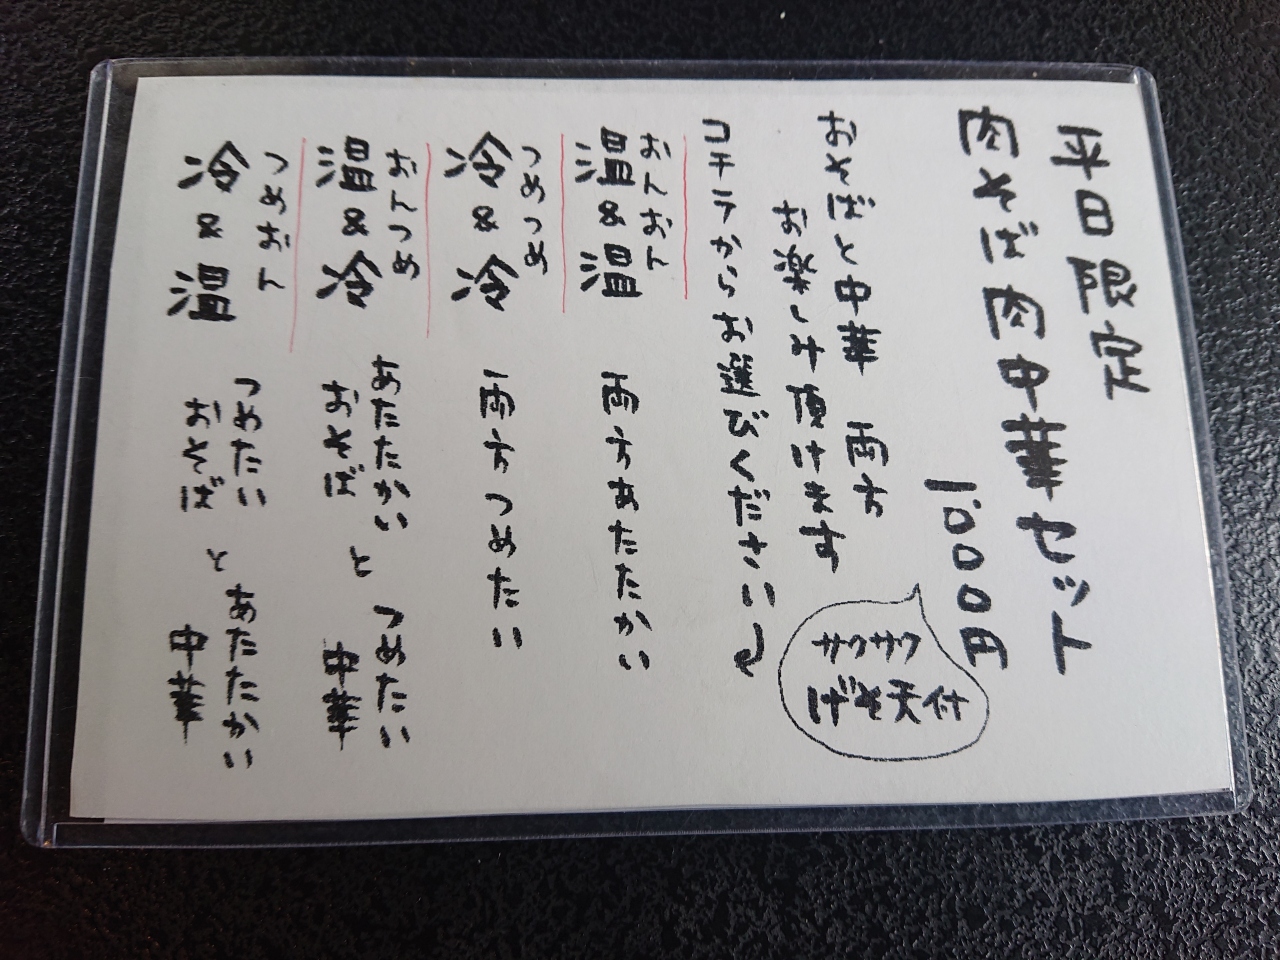 平日限定
肉そば肉中華セット
1,000円
サクサク
げそ天付
おそばと中華 両方
お楽しみ頂けます
コチラからお選びください
おんおん
温&温 両方あたたかい
つめつめ
冷&冷 両方つめたい
おんつめ
温&冷 あたたかいおそば と つめたい中華
つめおん
冷&温 つめたいおそば と あたたかい中華